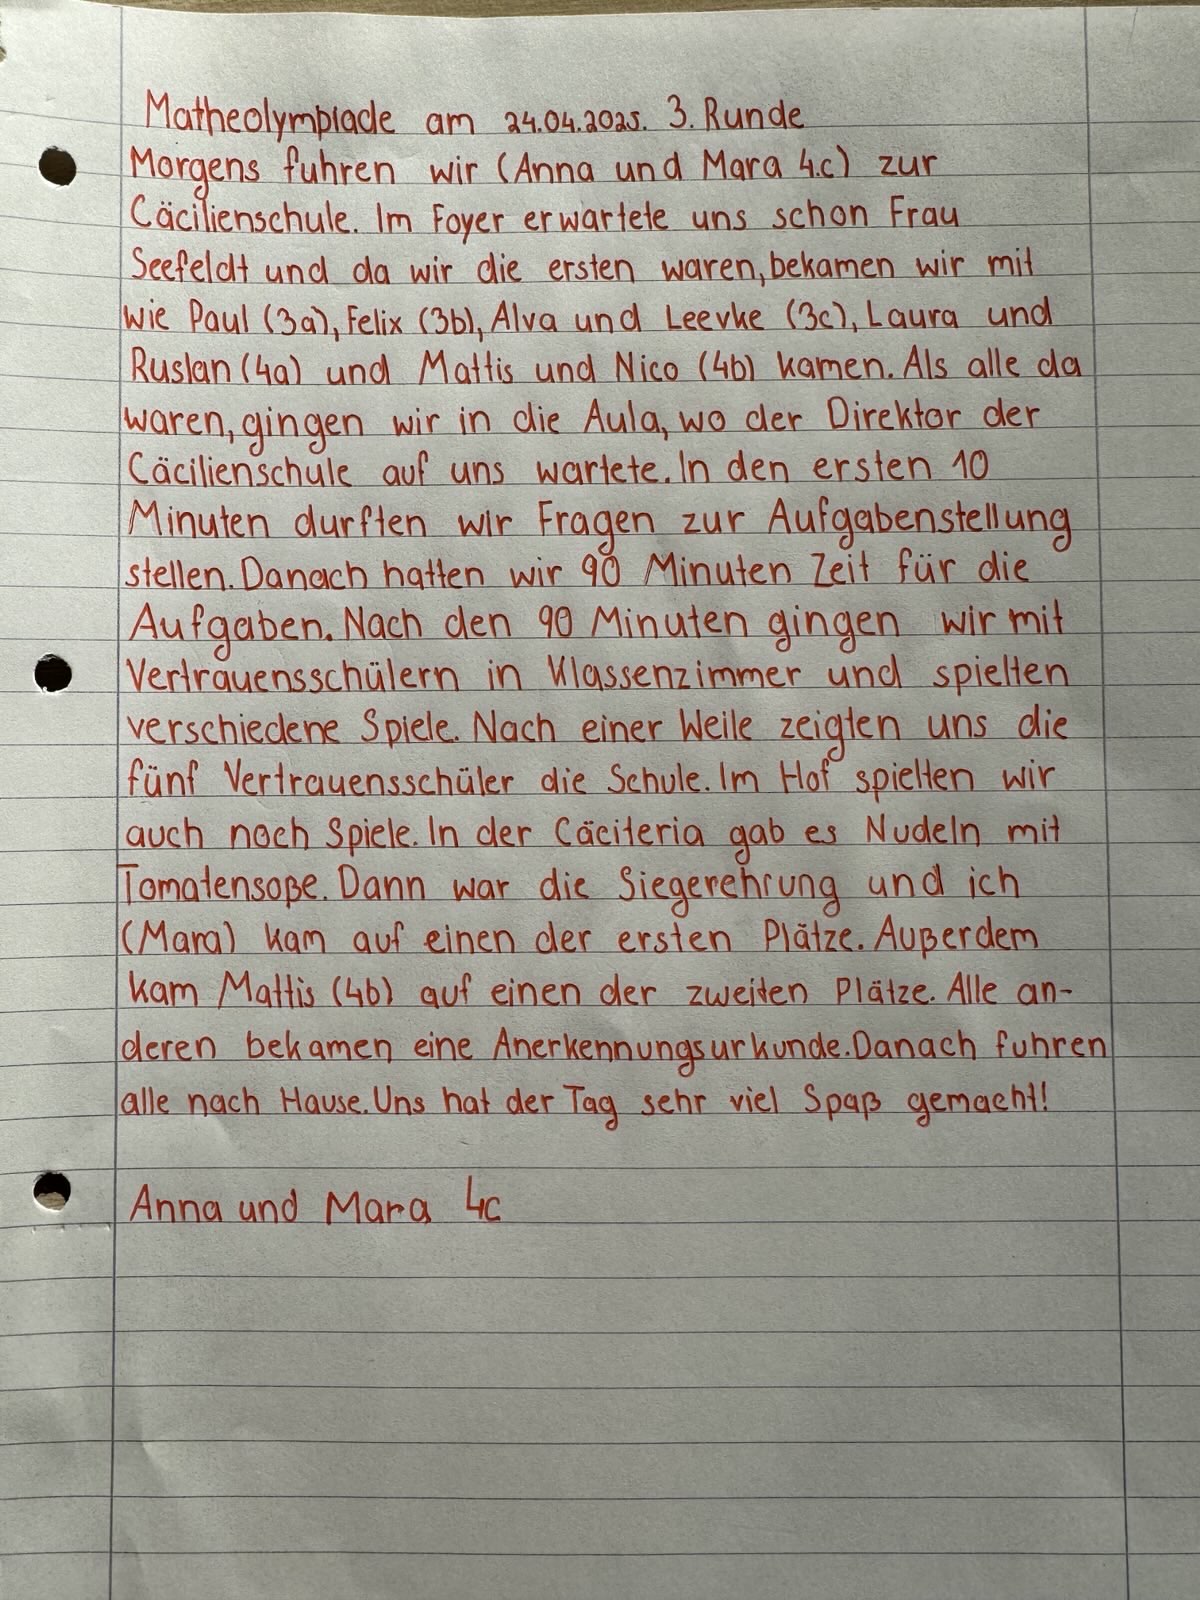 Matheolympiade am 24.04.2025. 3. Runde
Morgens fuhren wir (Anna und Mara 4.c) zur
Cäcilienschule. Im Foyer erwartete uns schon Frau
Seefeldt und da wir die ersten waren, bekamen wir mit
wie Paul (3a), Felix (3b), Alva und Leevke (3c), Laura und
Ruslan (4a) und Mattis und Nico (4b) kamen. Als alle da
waren, gingen wir in die Aula, wo der Direktor der
Cäcilienschule auf uns wartete. In den ersten 10
Minuten durften wir Fragen zur Aufgabenstellung
stellen. Danach hatten wir 90 Minuten Zeit für die
Aufgaben. Nach den 90 Minuten gingen wir mit
Vertrauensschülern in Klassenzimmer und spielten
verschiedene Spiele. Nach einer Weile zeigten uns die
fünf Vertrauensschüler die Schule. Im Hof spielten wir
auch noch Spiele. In der Cäciteria gab es Nudeln mit
Tomatensoße. Dann war die Siegerehrung und ich
(Mara) kam auf einen der ersten Plätze. Außerdem
kam Mattis (4b) auf einen der zweiten Plätze. Alle an-
deren bekamen eine Anerkennungsurkunde. Danach fuhren
alle nach Hause. Uns hat der Tag sehr viel Spaß gemacht!
Anna und Mara 4c